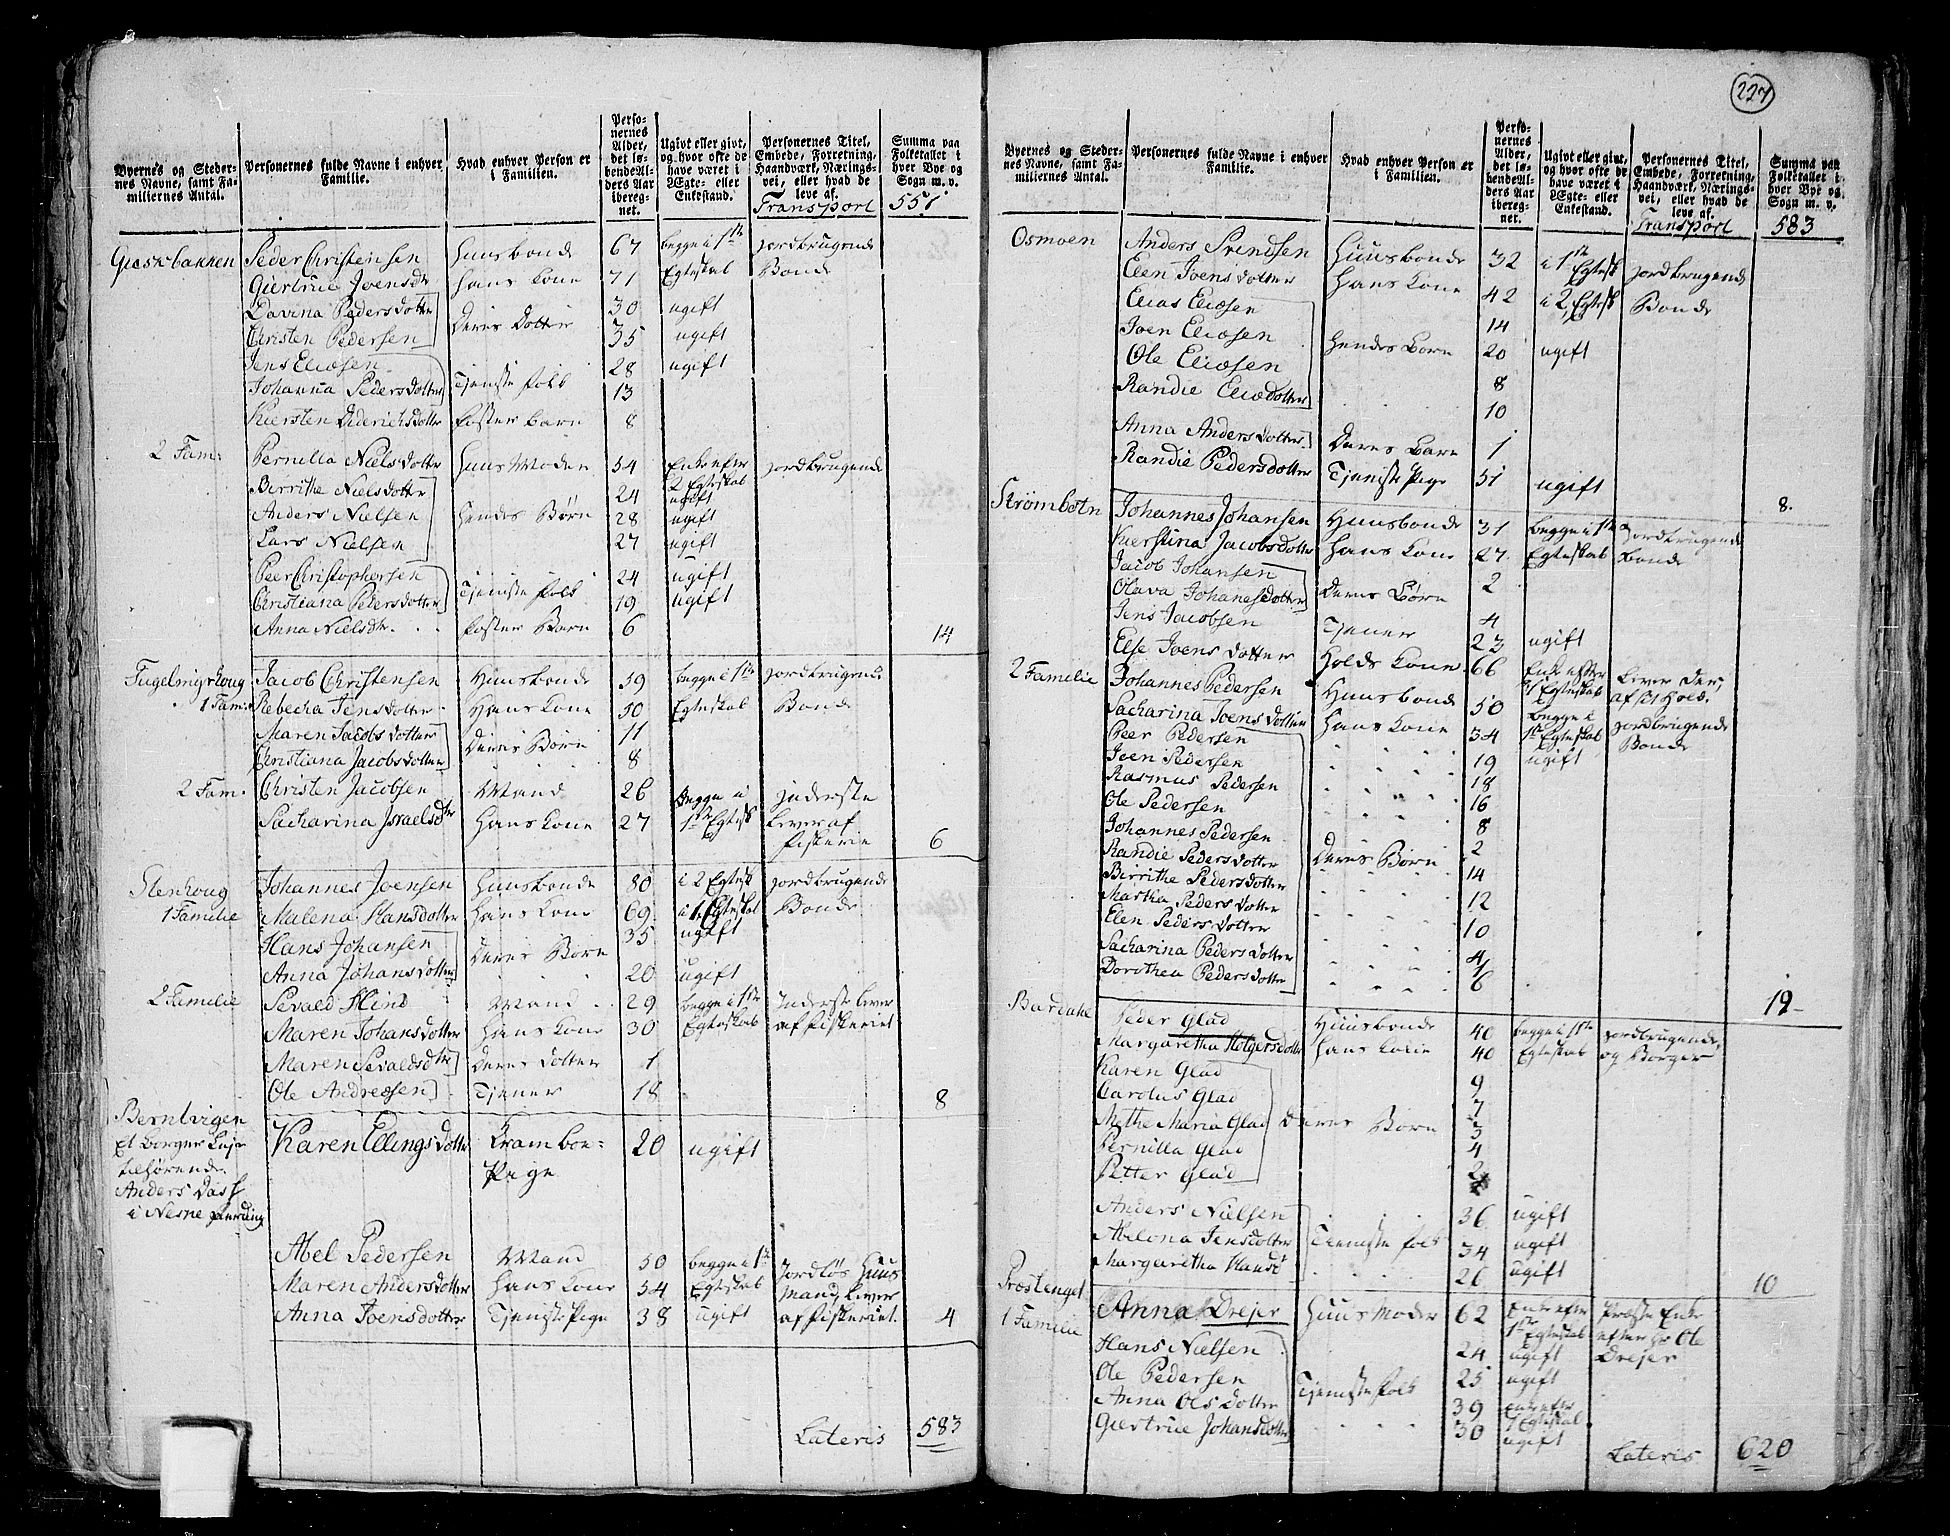 227
Byernes og Steder-
nes Navne, samt Fa-
miliernes Antal.
Personernes fulde Navne i enhver
Familie.
Hvad enhver Person er
i Familien.
Perso-
nernes
Alder,
det lø-
bende Al-
ders Aar
iberegnet.
Ugivt eller givt,
og hvor ofte de
have været i
Ægte- eller
Enkestand.
Personernes Titel,
Embede, Forretning,
Haandværk, Nærings-
vei, eller hvad de
leve af.
Summa paa
Folketallet i
hver Bye og
Sogn m. v.
Transport 551
Gieskebakken Peder Christensen Huusbonde 67 begge i 1ste jordbrugende
Giertrue Joensdtr hans Kone 71 Egteskab Bonde
Davina Pedersdotter Deres Dotter 30 ugift
Christen Pedersen 35 ugift
Jens Eliæsen 28 ugift
Johanna Pedersdotter Tjeniste folk 13
Kiersten Dideriksdotter foster barn 8
2 Fam: Pernilla Nielsdotter huus Moder 54 Enke efter jordbrugende
2 Egteskab
Birrithe Nielsdotter 24 ugift
Anders Nielsen hendes Børn 28 ugift
Lars Nielsen 27 ugift
Peer Christophersen 24 ugift
Christiana Pedersdotter Tjeniste folk 19 ugift
Anna Nielsdtr. foster Barn 6 14
Fugelmyrhoug Jacob Christensen Huusbonde 59 begge i 1ste jordbrugende
1 Fam: Rebecha Jensdotter Hans Kone 50 Egteskab Bonde
Maren Jacobsdotter Deres Børn 11
Christiana Jacobsdotter 8
2 Fam. Christen Jacobsen Mand 26 Begge i jnderste
Sacharina Jsraelsdtr hans Kone 27 1ste Egtesk lever af
fiskerie 6
Stenhoug Johannes Joensen Huusbonde 80 i 2 Egtesk jordbrugende
1 Familie Malena Hansdotter hans Kone 69 i 1. Egteskab Bonde
Hans Johansen Deres Børn 35 ugift
Anna Johansdotter 20 ugift
2 Familie Sevald Hind Mand 29 begge i 1ste Jnderste lever
Maren Johansdotter hans Kone 30 Egteskab af fiskeriet
Maren Sevaldsdtr Deres Dotter 1
Ole Andreæsen Tjener 18 8
Berntvigen
Et borger Leje
tilhørende
Anders Dass
i Nesne
Karen Ellingsdotter Kramboe- 20 ugift
Pige
Abel Pedersen Mand 50 begge i 1ste Jordløs Huus
Maren Andersdotter hans Kone 54 Egteskab Mand, lever
Anna Joensdotter Tjeniste Pige 38 ugift af fiskeriet. 4
Lateris 583
Byernes og Steder-
nes Navne, samt Fa-
miliernes Antal.
Personernes fulde Navne i enhver
Familie.
Hvad enhver Person er
i Familien.
Perso-
nernes
Alder,
det lø-
bende Al-
ders Aar
iberegnet.
Ugivt eller givt,
og hvor ofte de
have været i
Ægte- eller
Enkestand.
Personernes Titel,
Embede, Forretning,
Haandværk, Nærings-
vei, eller hvad de
leve af.
Summa paa
Folketallet i
hver Bye og
Sogn m. v.
Transport 583
Osmoen Anders Svendsen Huusbonde 32 i 1ste Egtesk jordbrugende
Elen Joensdotter hans Kone 42 i 2 Egtesk Bonde
Elias Eliæsen 14
Joen Eliæsen hendes Børn 20 ugift
Ole Eliæsen 8
Randie Eliædotter 10
Anna Andersdotter Deres Barn 1
Randie Pedersdotter Tjeniste Pige 51 ugift
8.
Strømbotn Johannes Johansen Huusbonde 31 begge i 1ste jordbrugende
Kierstina Jacobsdotter hans Kone 27 Egteskab bonde
Jacob Johansen 2
Olava Johanesdotter Deres Børn 4
Jens Jacobsen Tjener 23 ugift
Else Joensdotter Holds Kone 66 Enke efter lever der,
1 Egteskab af sit Hold.
2 Familie Johannes Pedersen Huusbonde 50 begge i jordbrugende
Sacharina Joensdotter hans Kone 34 1ste Egteskab Bonde
Peer Pedersen 19 ugift
Joen Pedersen 18
Rasmus Pedersen 16
Ole Pedersen 8
Johannes Pedersen 2
Randie Pedersdotter Deres Børn 14
Birrithe Pedersdotter 12
Martha Pedersdotter 10
Elen Pedersdotter
Sacharina Pedersdotter 4
Dorothea Pedersdotter 6
19
Bardahl Peder Glad Huusbonde 40 begge i 1ste jordbrugende
Margaretha Holgersdotter hans Kone 40 Egteskab og Borger
Karen Glad 9
Carolus Glad 7
Mette Maria Glad Deres Børn 5
Pernilla Glad 4
Petter Glad 2
Anders Nielsen 36 ugift
Abelona Jensdotter Tjeniste folk 34 ugift
Margaretha Hansd 26 ugift
10
Prostenget Anna Drejer Huus Moder 62 Enke efter Præste Enke
1 Familie 1ste Egteskab efter Hr Ole
Hans Nielsen 24 ugift Drejer
Ole Pedersen Tjeniste folk 25 ugift
Anna Olsdotter 39 Enke efter
1 Egteskab
Giertrue Johansdotter 30 ugift
Lateris 620